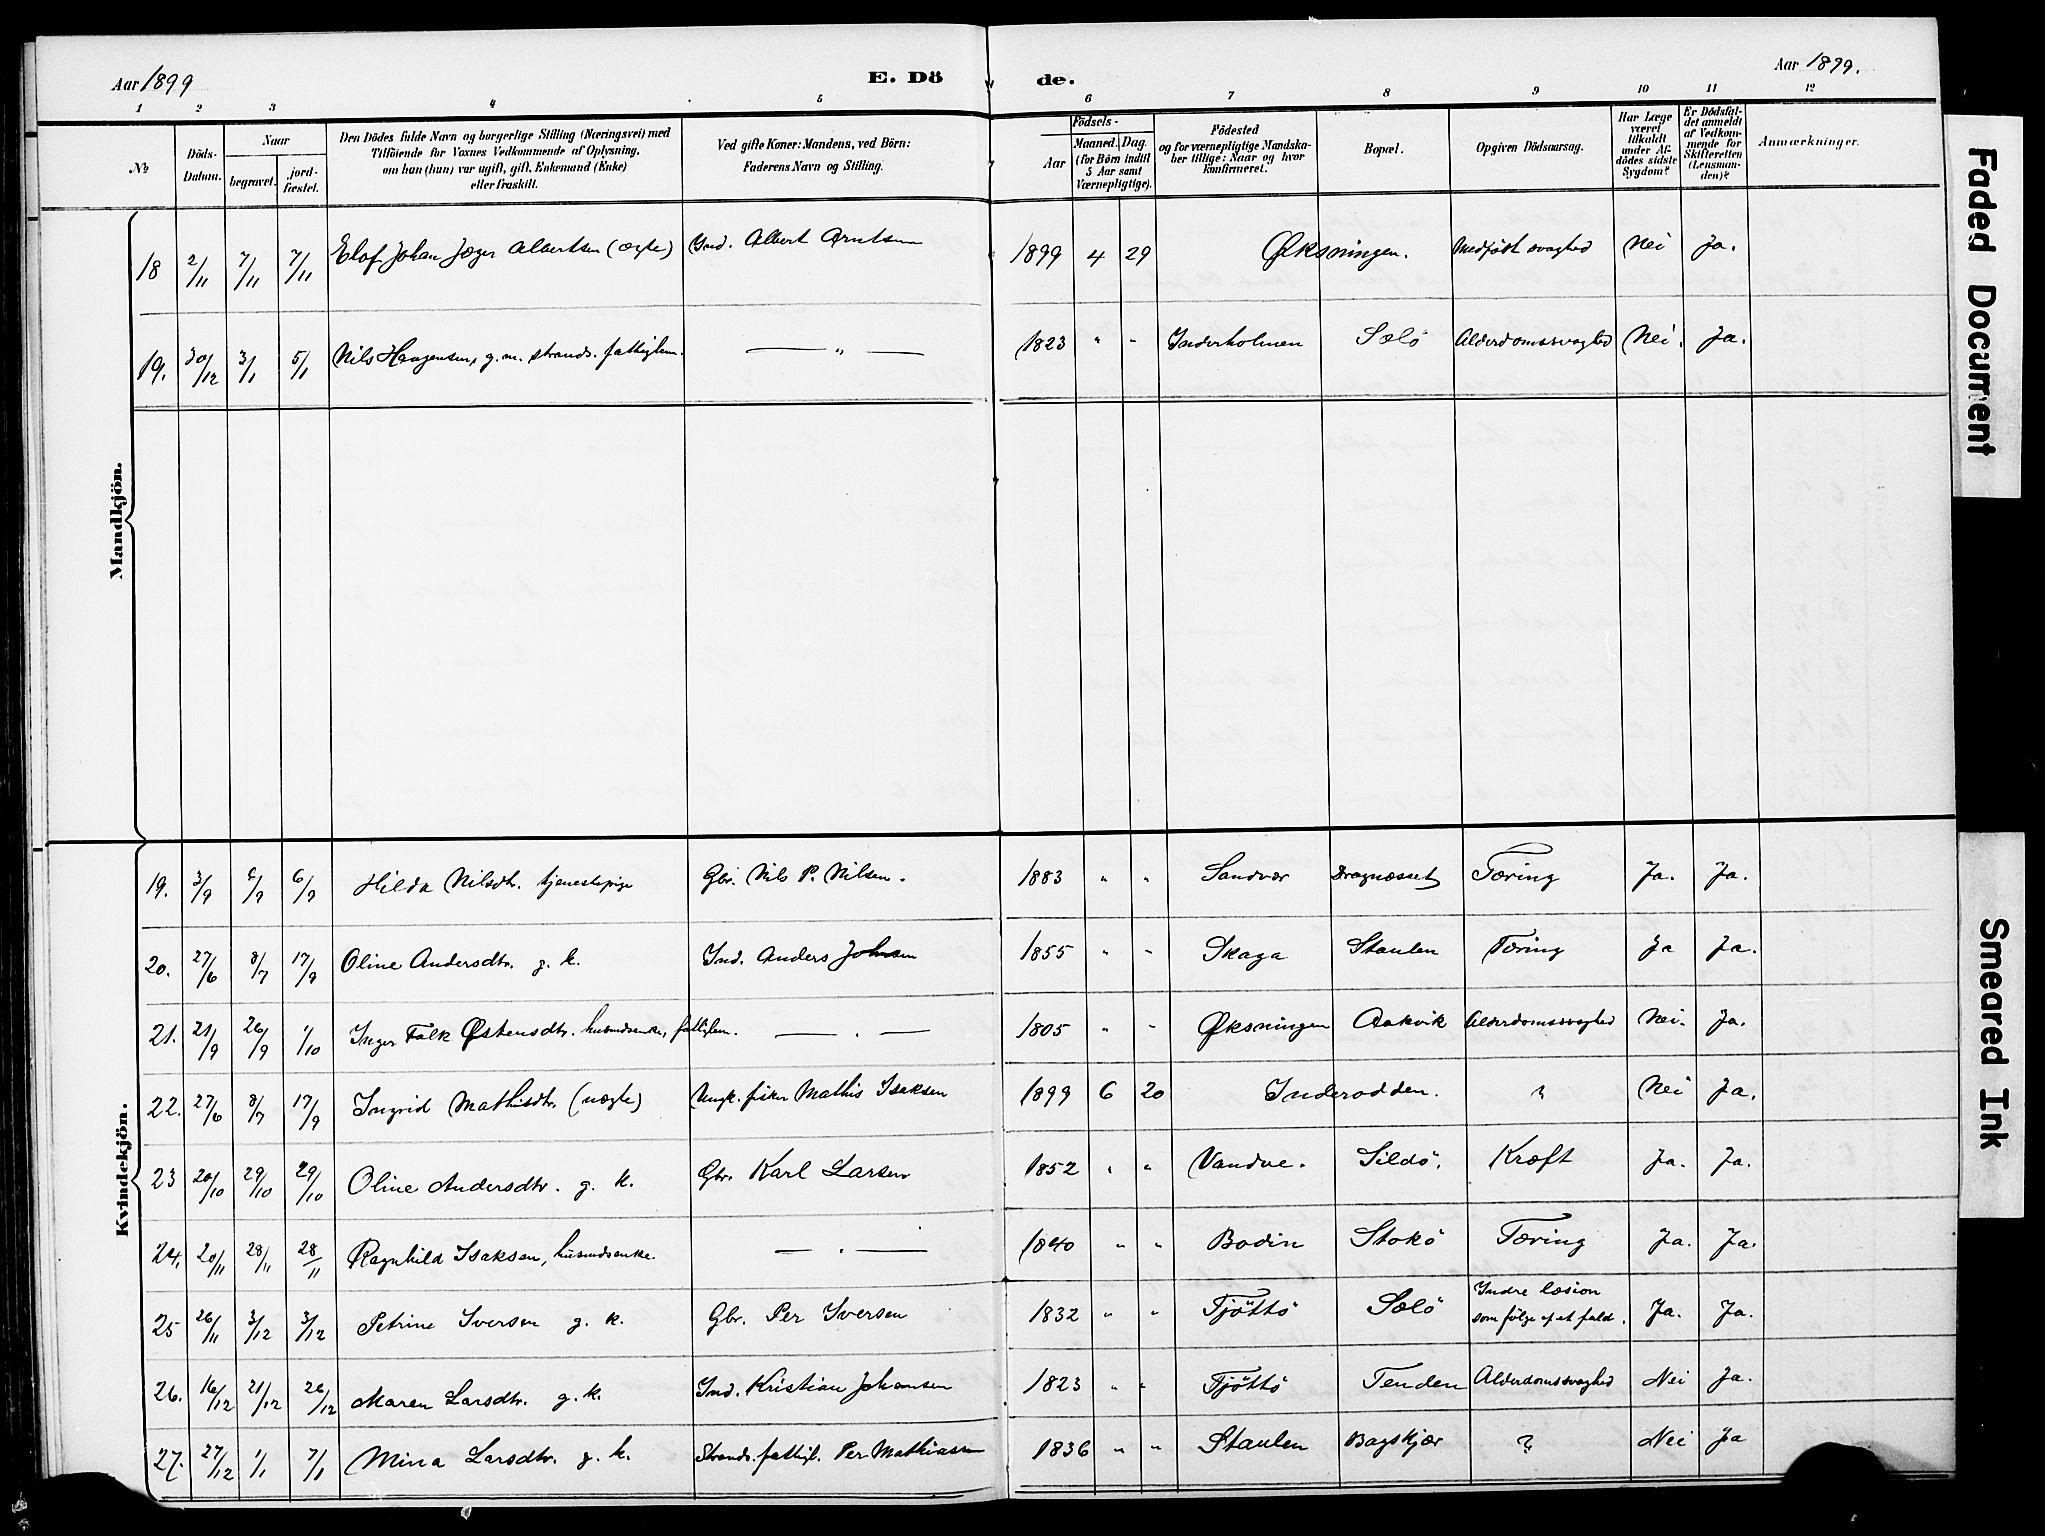 Aar 1899
E. Dö
de.
Aar 1899.
1 2 3 4 5 6 7 8 9 10 11 12
No
Döds-
Datum.
Naar
begravet.
jord-
fæstet.
Den Dödes fulde Navn og borgerlige Stilling (Næringsvei) med
Tilföiende for Voxnes Vedkommende af Oplysning,
om han (hun) var ugift, gift, Enkemand (Enke)
eller fraskilt.
Ved gifte Koner: Mandens, ved Börn:
Faderens Navn og Stilling.
Födsels-
Aar
Maaned.
Dag.
(for Börn indtil
5 Aar samt
Værnepligtige).
Födested
og for værnepligtige Mandska-
ber tillige: Naar og hvor
konfirmeret.
Bopæl.
Opgiven Dödsaarsag.
Har Læge
været
tilkaldt
under Af-
dödes sidste
Sygdom?
Er Dödsfal-
det anmeldt
af Vedkom-
mende for
Skifteretten
(Lensman-
den)?
Anmærkninger.
Mandkjön.
18 2/11 7/11 7/11 Elof Johan Jæger Albertsen (ægte) Ind. Albert Arntsen 1899 4 29 Øksningen. Medfödt svaghed Nei Ja.
19. 30/12 3/1 5/1 Nils Haagensen, g.m. strands. fattiglem. — " — 1823 " " Inderholmen Sælö Alderdomssvaghed Nei. Ja.
Kvindekjön.
19. 3/9 6/9 6/9 Hilda Nilsdtr. tjenestepige Gbr. Nils P. Nilsen. 1883 " " Sandvær Dragnæsset Tæring Ja. Ja.
20. 27/6 8/7 17/9 Oline Andersdtr. g. k. Ind. Anders Johnsen 1855 " " Skaga Staulen Tæring Ja Ja.
21. 21/9 26/9 1/10 Inger Falk Østensdtr. husmdsenke, fattiglem. — " — 1805 " " Øksningen Aakvik Alderdomssvaghed Nei. Ja.
22. 27/6 8/7 17/9 Ingrid Mathisdtr. (uægte) Ungk. fisker Mathis Isaksen 1899 6 20 Inderodden. ? Nei Ja.
23 20/10 29/10 29/10 Oline Andersdtr. g. k. Gbr. Karl Larsen 1852 " " Vandve. Sildö. Kræft Ja. Ja.
24. 20/11 28/11 28/11 Ragnhild Isaksen, husmdsenke — " — 1840 " " Bodin Stokö Tæring Ja. Ja.
25 26/11 3/12 3/12 Petrine Iversen g. k. Gbr. Per Iversen 1832 " " Tjöttö Sælö Indre læsion
som følge af et fald. Ja. Ja.
26. 16/12 21/12 26/12 Maren Larsdtr. g. k. Ind. Kristian Johansen 1823 " " Tjöttö Tenden Alderdomssvaghed Nei Ja.
27. 27/12 1/1 7/1 Mina Larsdtr. g. k. Strands. fattigl. Per Mathiasen 1836 " " Staulen Bagskjær ? Nei Ja
Faded Document
Smeared Ink